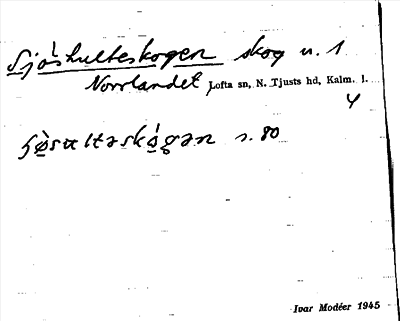 Sjöshulteskogen skog u. 1
Norrlandet, Lofta sn, N. Tjusts hd, Kalm. l.
4
s. 80
Ivar Modéer 1945